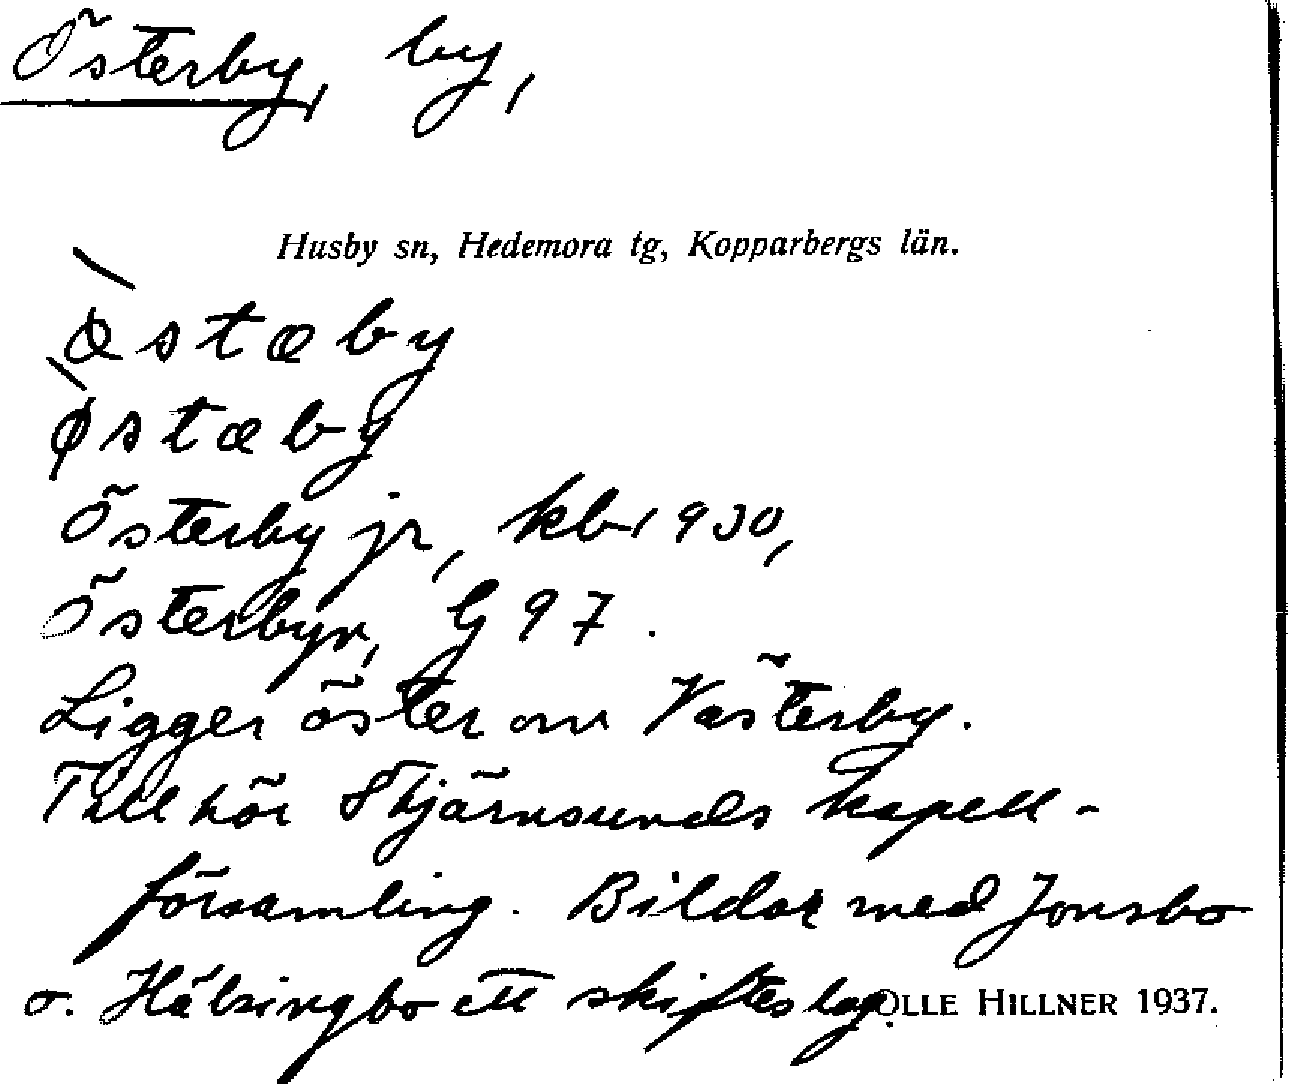 Österby, by,
Husby sn, Hedemora tg, Kopparbergs län.
œ̀stæby
ø̀stæby
Österby jr, kb 1930,
Österbyn, G 97.
Ligger öster om Västerby.
Tillhör Stjärnsunds kapell-
församling. Bildar med Jonsbo
o. Hälsingbo ett skifteslag.
OLLE HILLNER 1937.